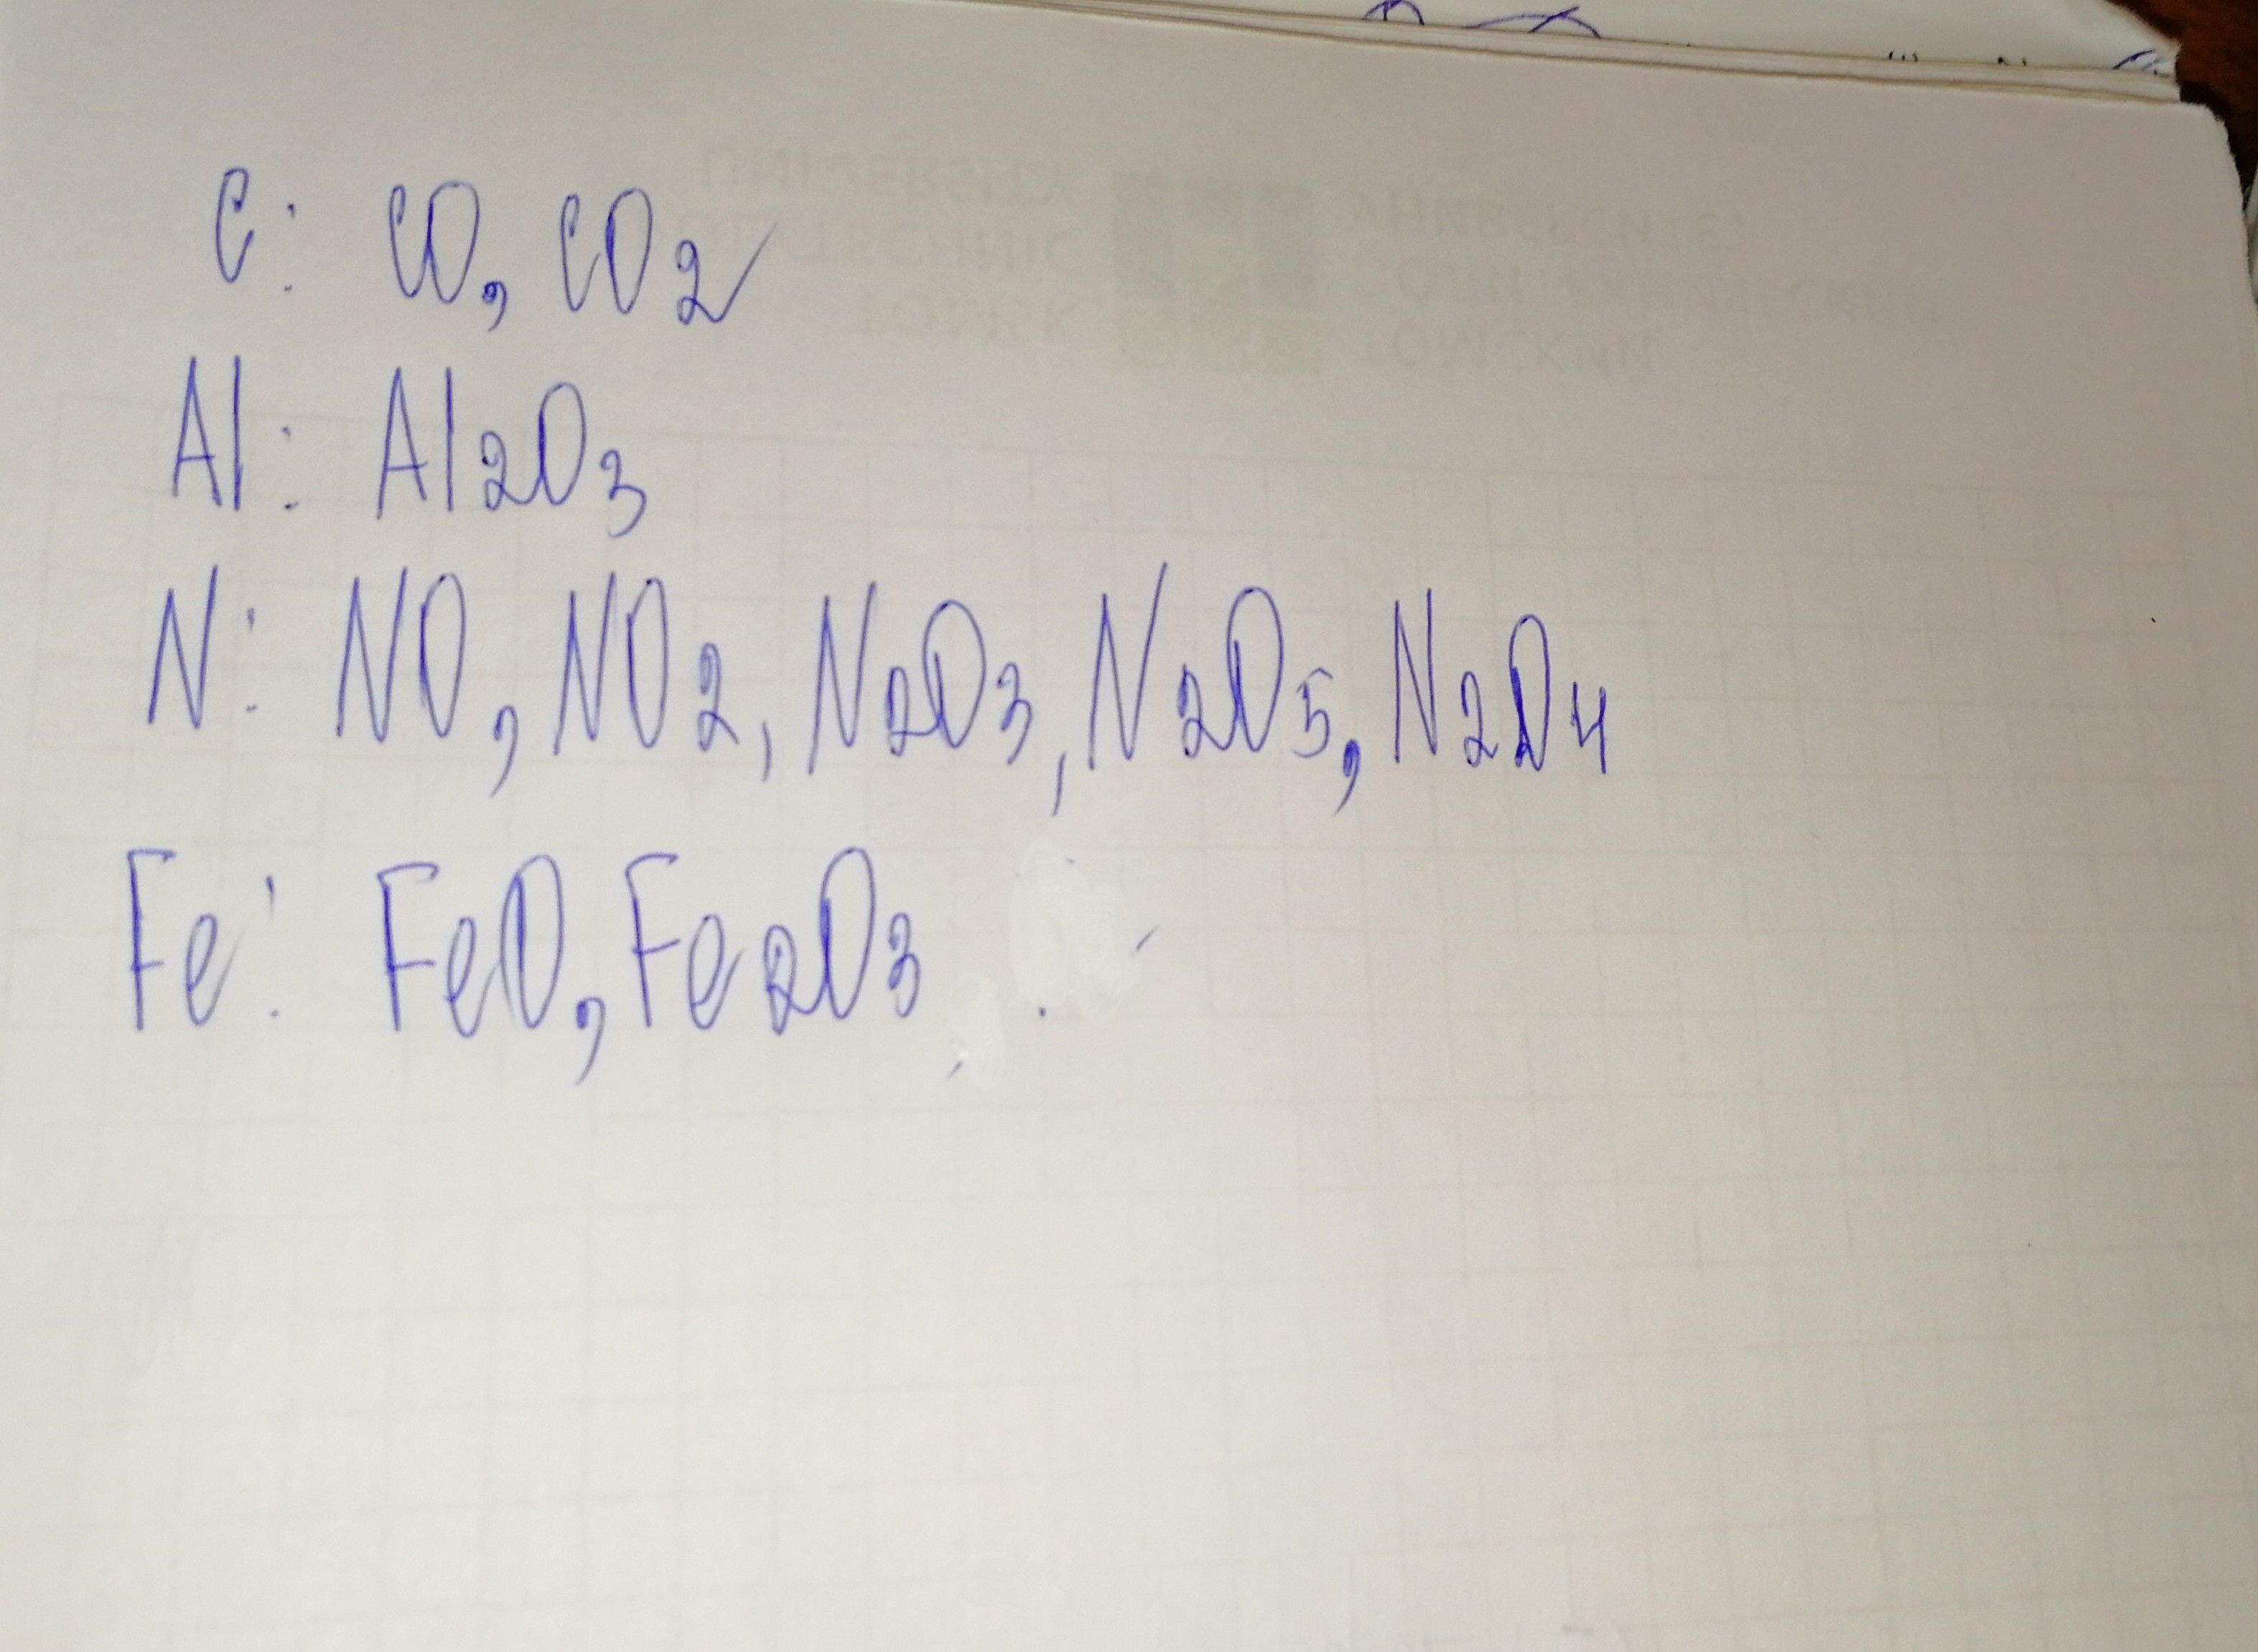 C: CO, CO2
Al: Al2O3
N: NO, NO2, N2O3, N2O5, N2O4
Fe: FeO, Fe2O3